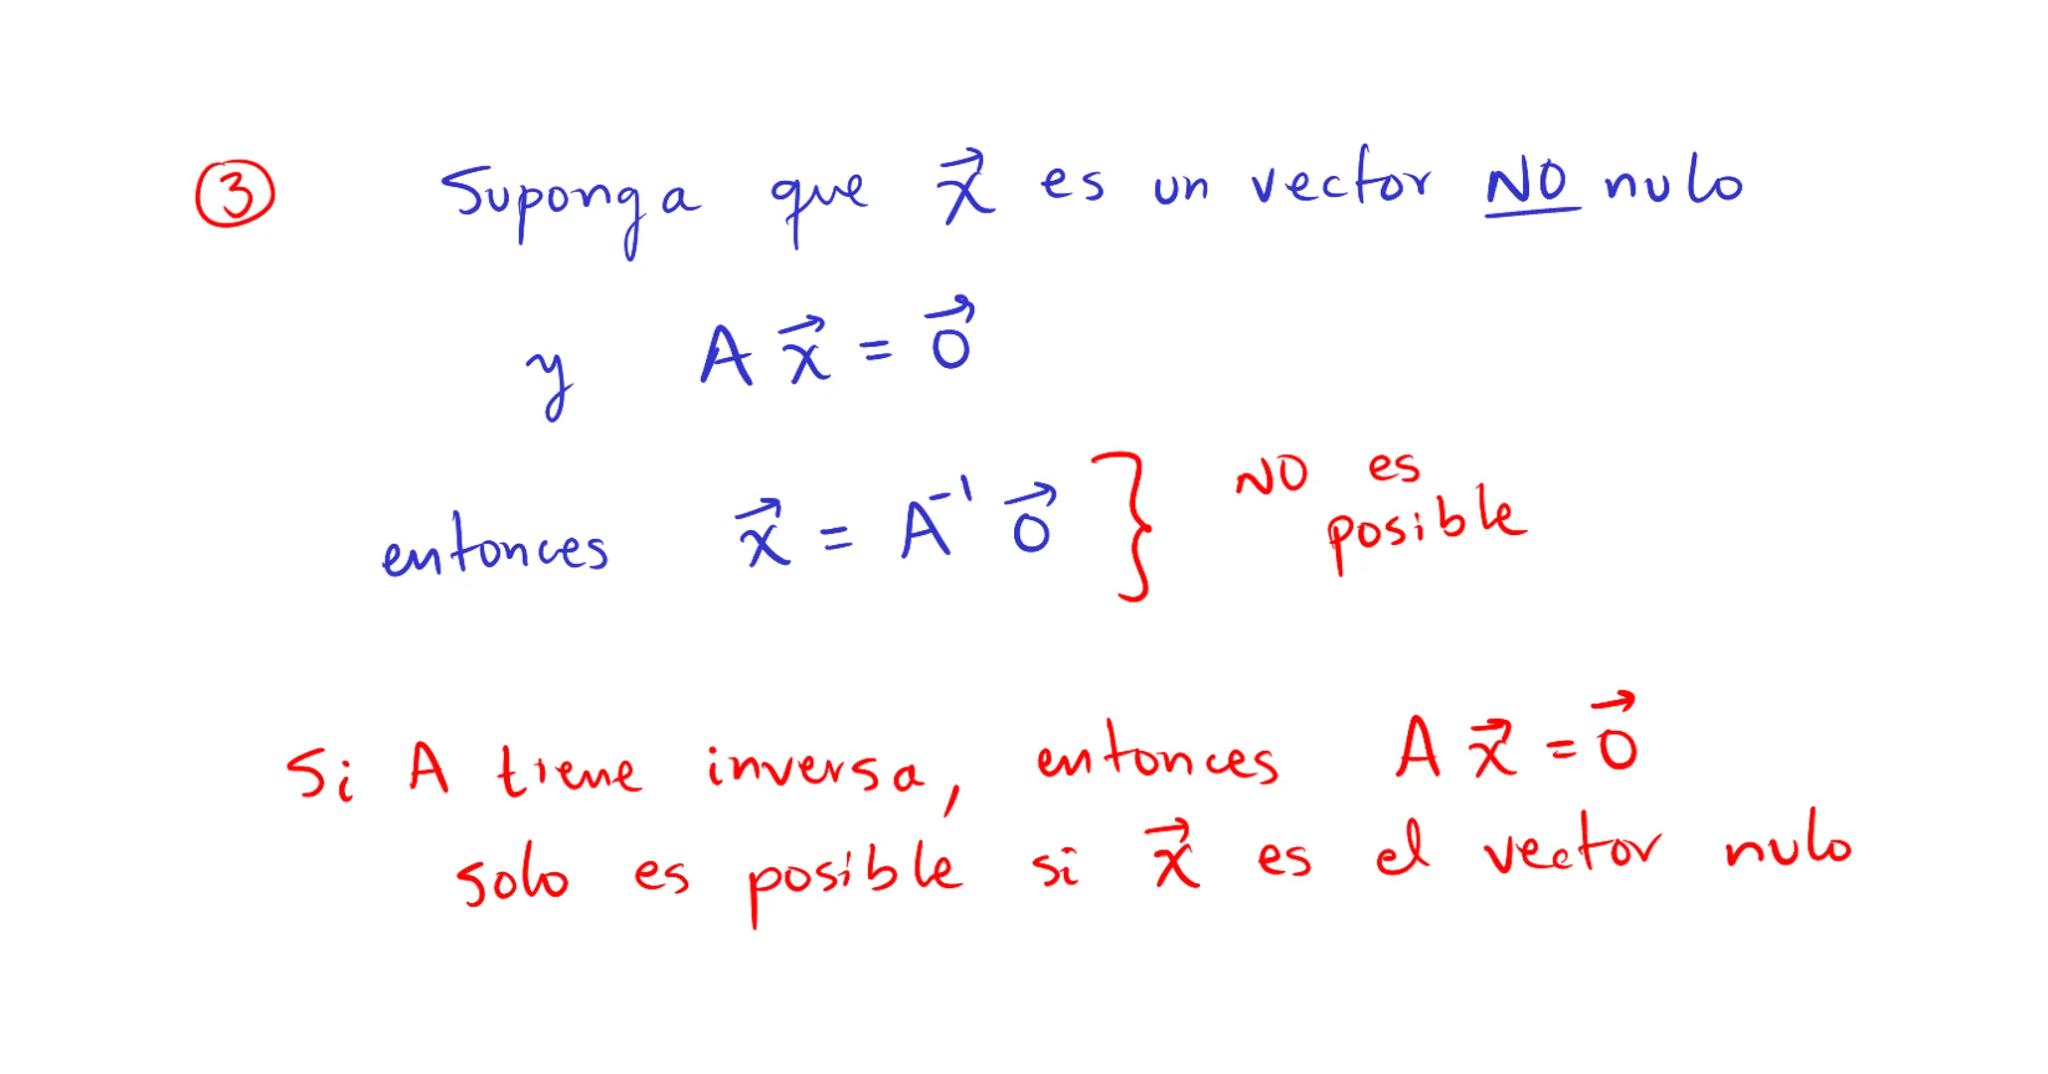 ③ Suponga que x⃗ es un vector NO nulo
y A x⃗ = 0⃗
entonces x⃗ = A⁻¹ 0⃗ } NO es posible
Si A tiene inversa, entonces A x⃗ = 0⃗
solo es posible si x⃗ es el vector nulo